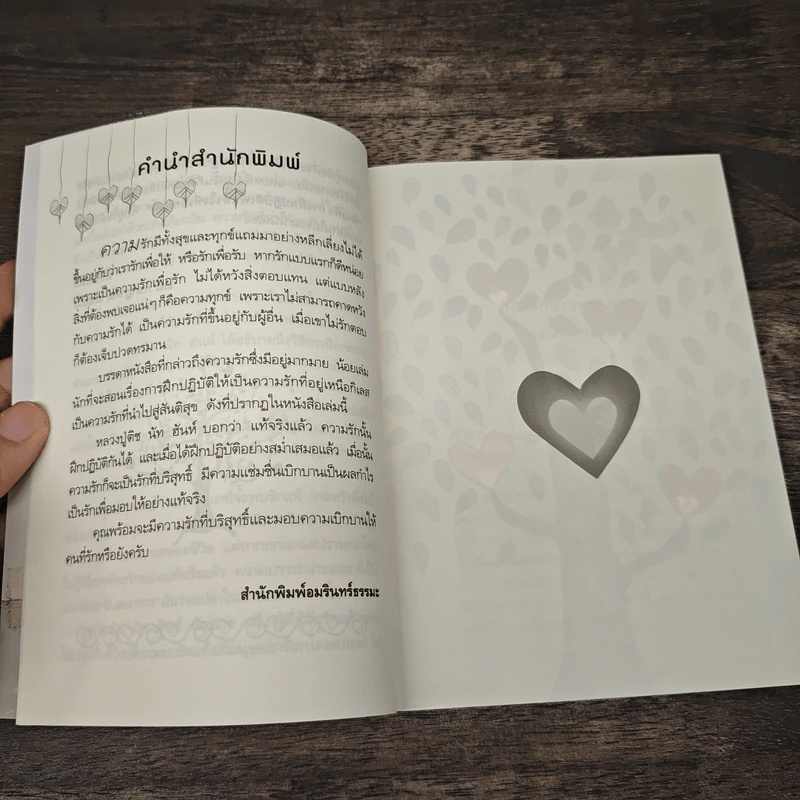 คำนำสำนักพิมพ์
ความรักมีทั้งสุขและทุกข์แถมมาอย่างหลีกเลี่ยงไม่ได้
ขึ้นอยู่กับว่าเรารักเพื่อให้ หรือรักเพื่อรับ หากรักแบบแรกก็ดีหน่อย
เพราะเป็นความรักเพื่อรัก ไม่ได้หวังสิ่งตอบแทน แต่แบบหลัง
สิ่งที่ต้องพบเจอแน่ๆ ก็คือความทุกข์ เพราะเราไม่สามารถคาดหวัง
กับความรักได้ เป็นความรักที่ขึ้นอยู่กับผู้อื่น เมื่อเขาไม่รักตอบ
ก็ต้องเจ็บปวดทรมาน
บรรดาหนังสือที่กล่าวถึงความรักซึ่งมีอยู่มากมาย น้อยเล่ม
นักที่จะสอนเรื่องการฝึกปฏิบัติให้เป็นความรักที่อยู่เหนือกิเลส
เป็นความรักที่นำไปสู่สันติสุข ดังที่ปรากฏในหนังสือเล่มนี้
หลวงปู่ติช นัท ฮันห์ บอกว่า แท้จริงแล้ว ความรักนั้น
ฝึกปฏิบัติกันได้ และเมื่อได้ฝึกปฏิบัติอย่างสม่ำเสมอแล้ว เมื่อนั้น
ความรักก็จะเป็นรักที่บริสุทธิ์ มีความแช่มชื่นเบิกบานเป็นผลกำไร
เป็นรักเพื่อมอบให้อย่างแท้จริง
คุณพร้อมจะมีความรักที่บริสุทธิ์และมอบความเบิกบานให้
คนที่รักหรือยังครับ
สำนักพิมพ์อมรินทร์ธรรมะ